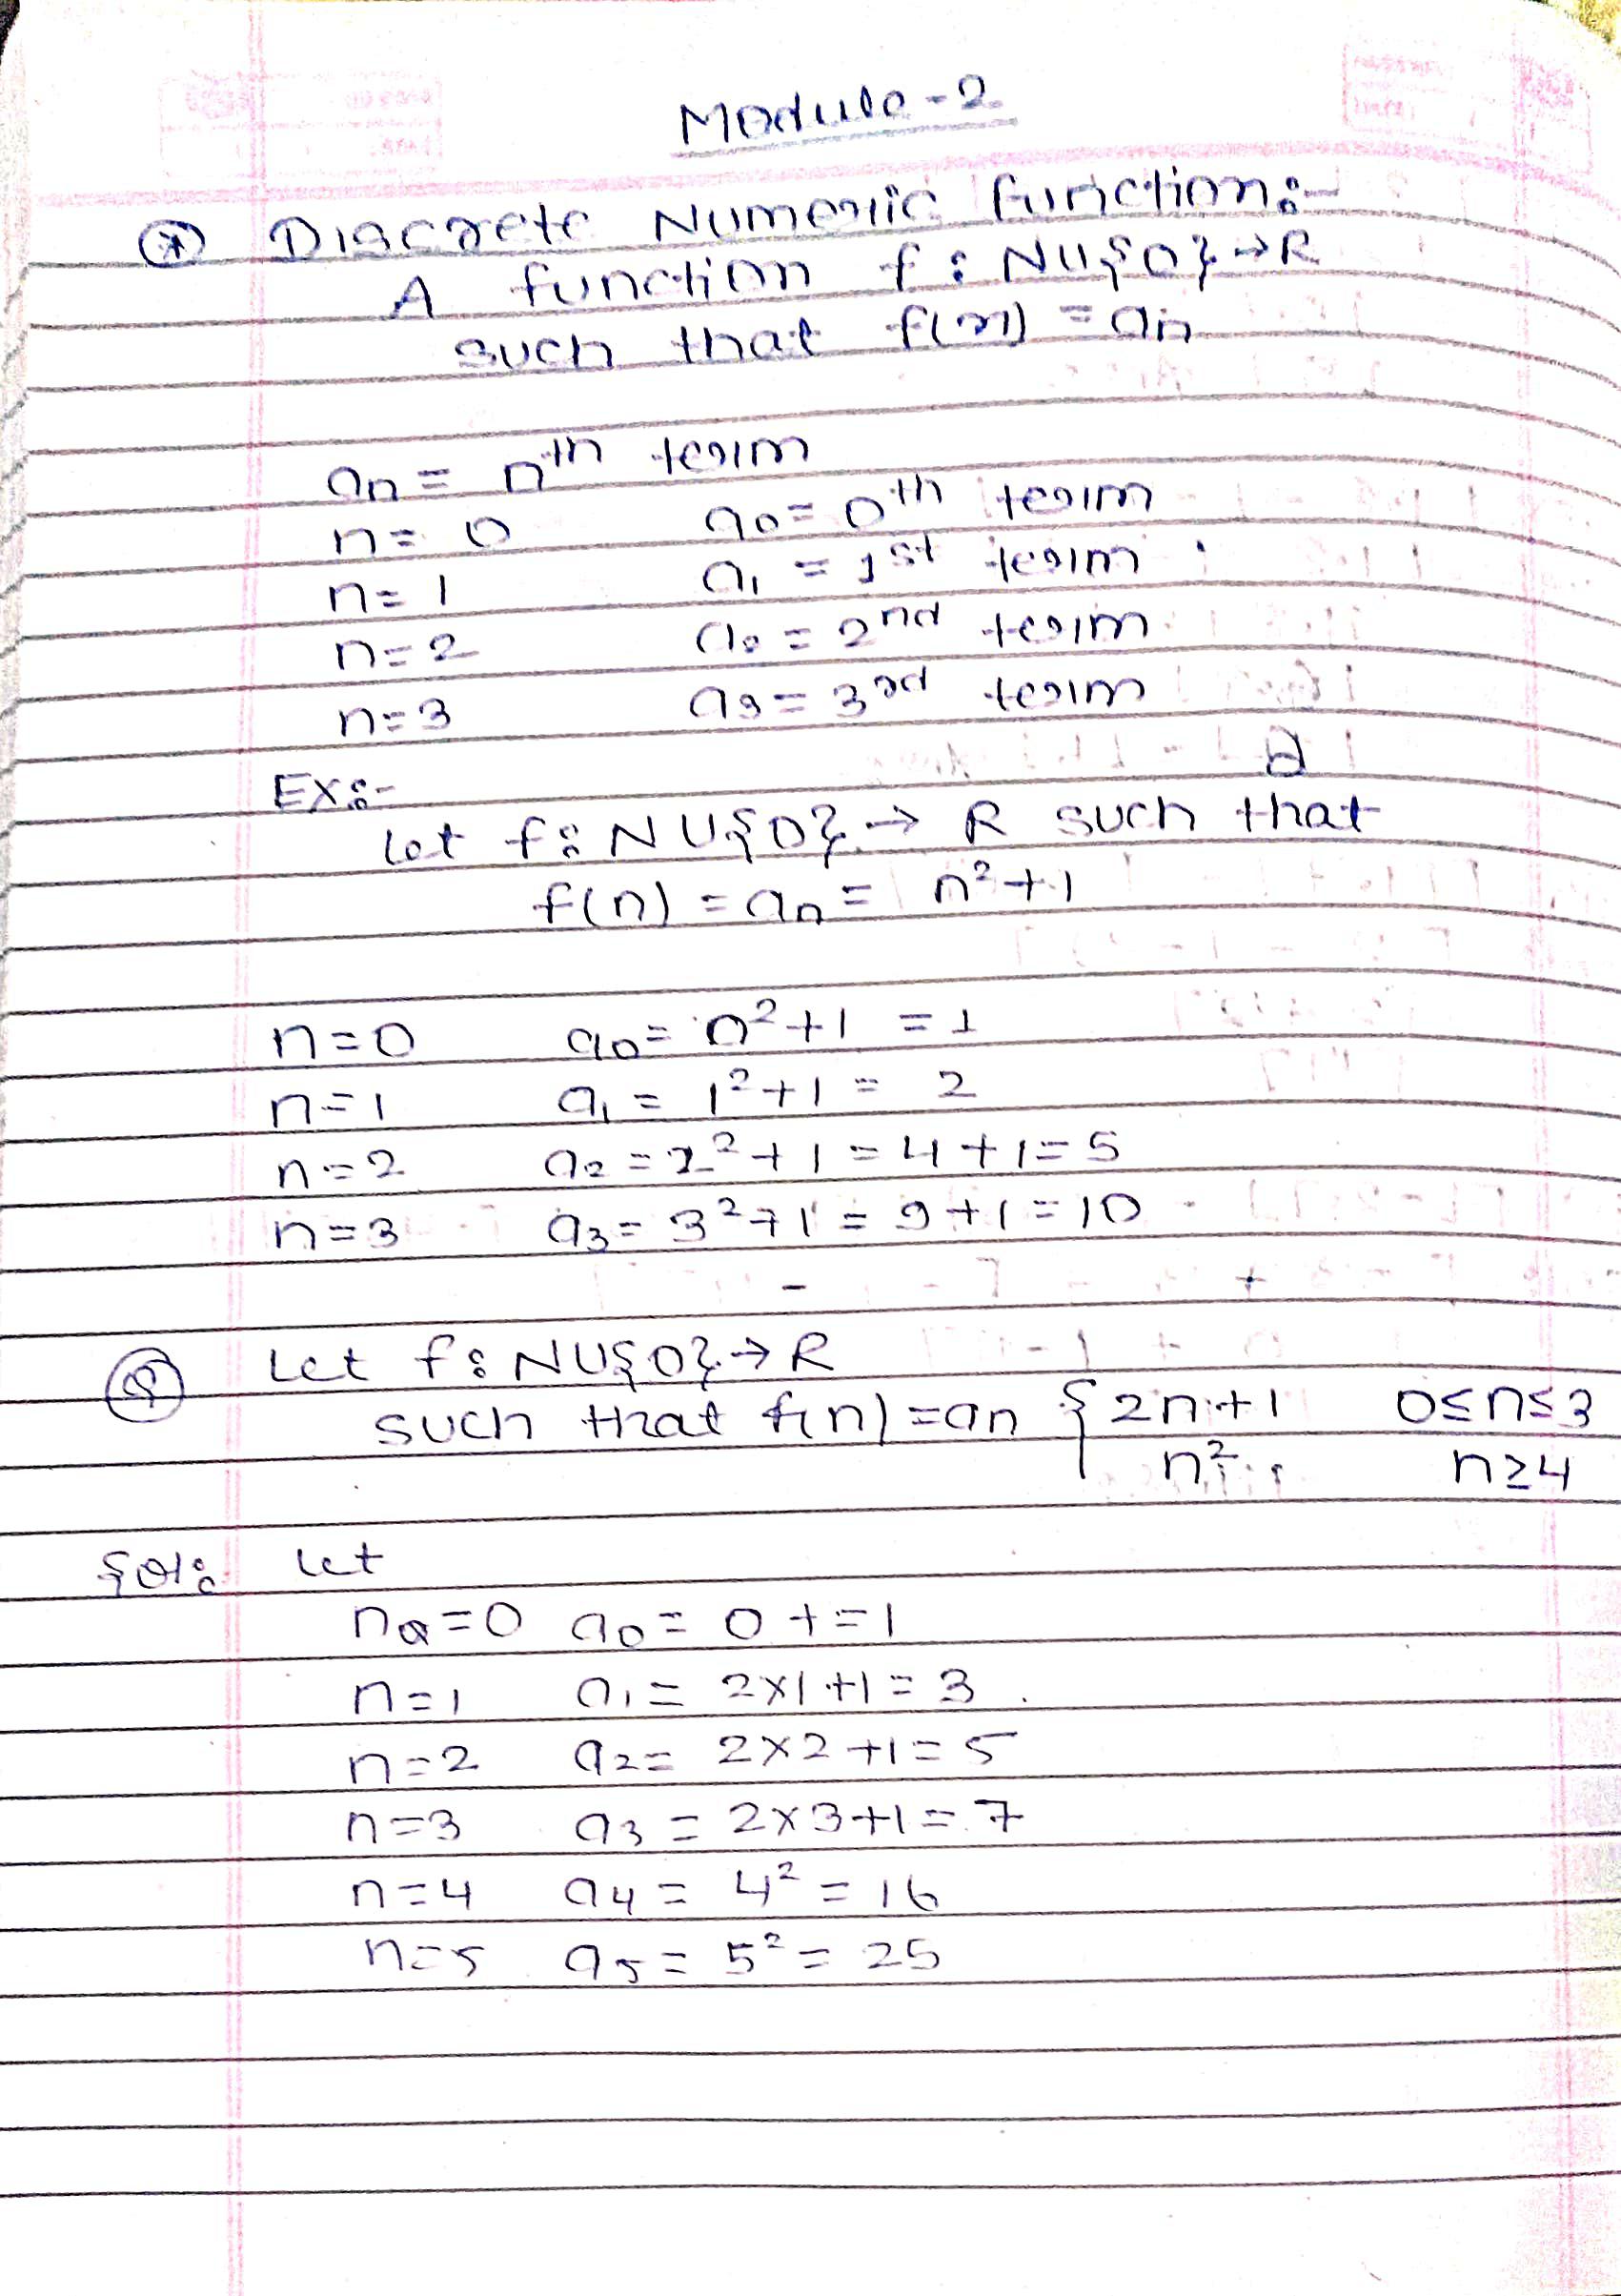 Module-2
Discrete Numeric function:-
A function f: NU{0}→R
such that f(n) = an
an = nth term
n=0 a0= 0th term
n=1 a1 = 1st term
n=2 a2 = 2nd term
n=3 a3= 3rd term
Ex:-
Let f: NU{0}→ R such that
f(n) = an = n²+1
n=0 a0= 0²+1 = 1
n=1 a1 = 1²+1 = 2
n=2 a2 = 2²+1 = 4+1=5
n=3 a3= 3²+1 = 9+1=10
Q Let f: NU{0}→R
such that f(n)=an { 2n+1 0≤n≤3
n² n≥4
Sol: Let
n=0 a0= 0+=1
n=1 a1= 2×1+1=3
n=2 a2= 2×2+1=5
n=3 a3 = 2×3+1=7
n=4 a4= 4²=16
n=5 a5= 5²= 25